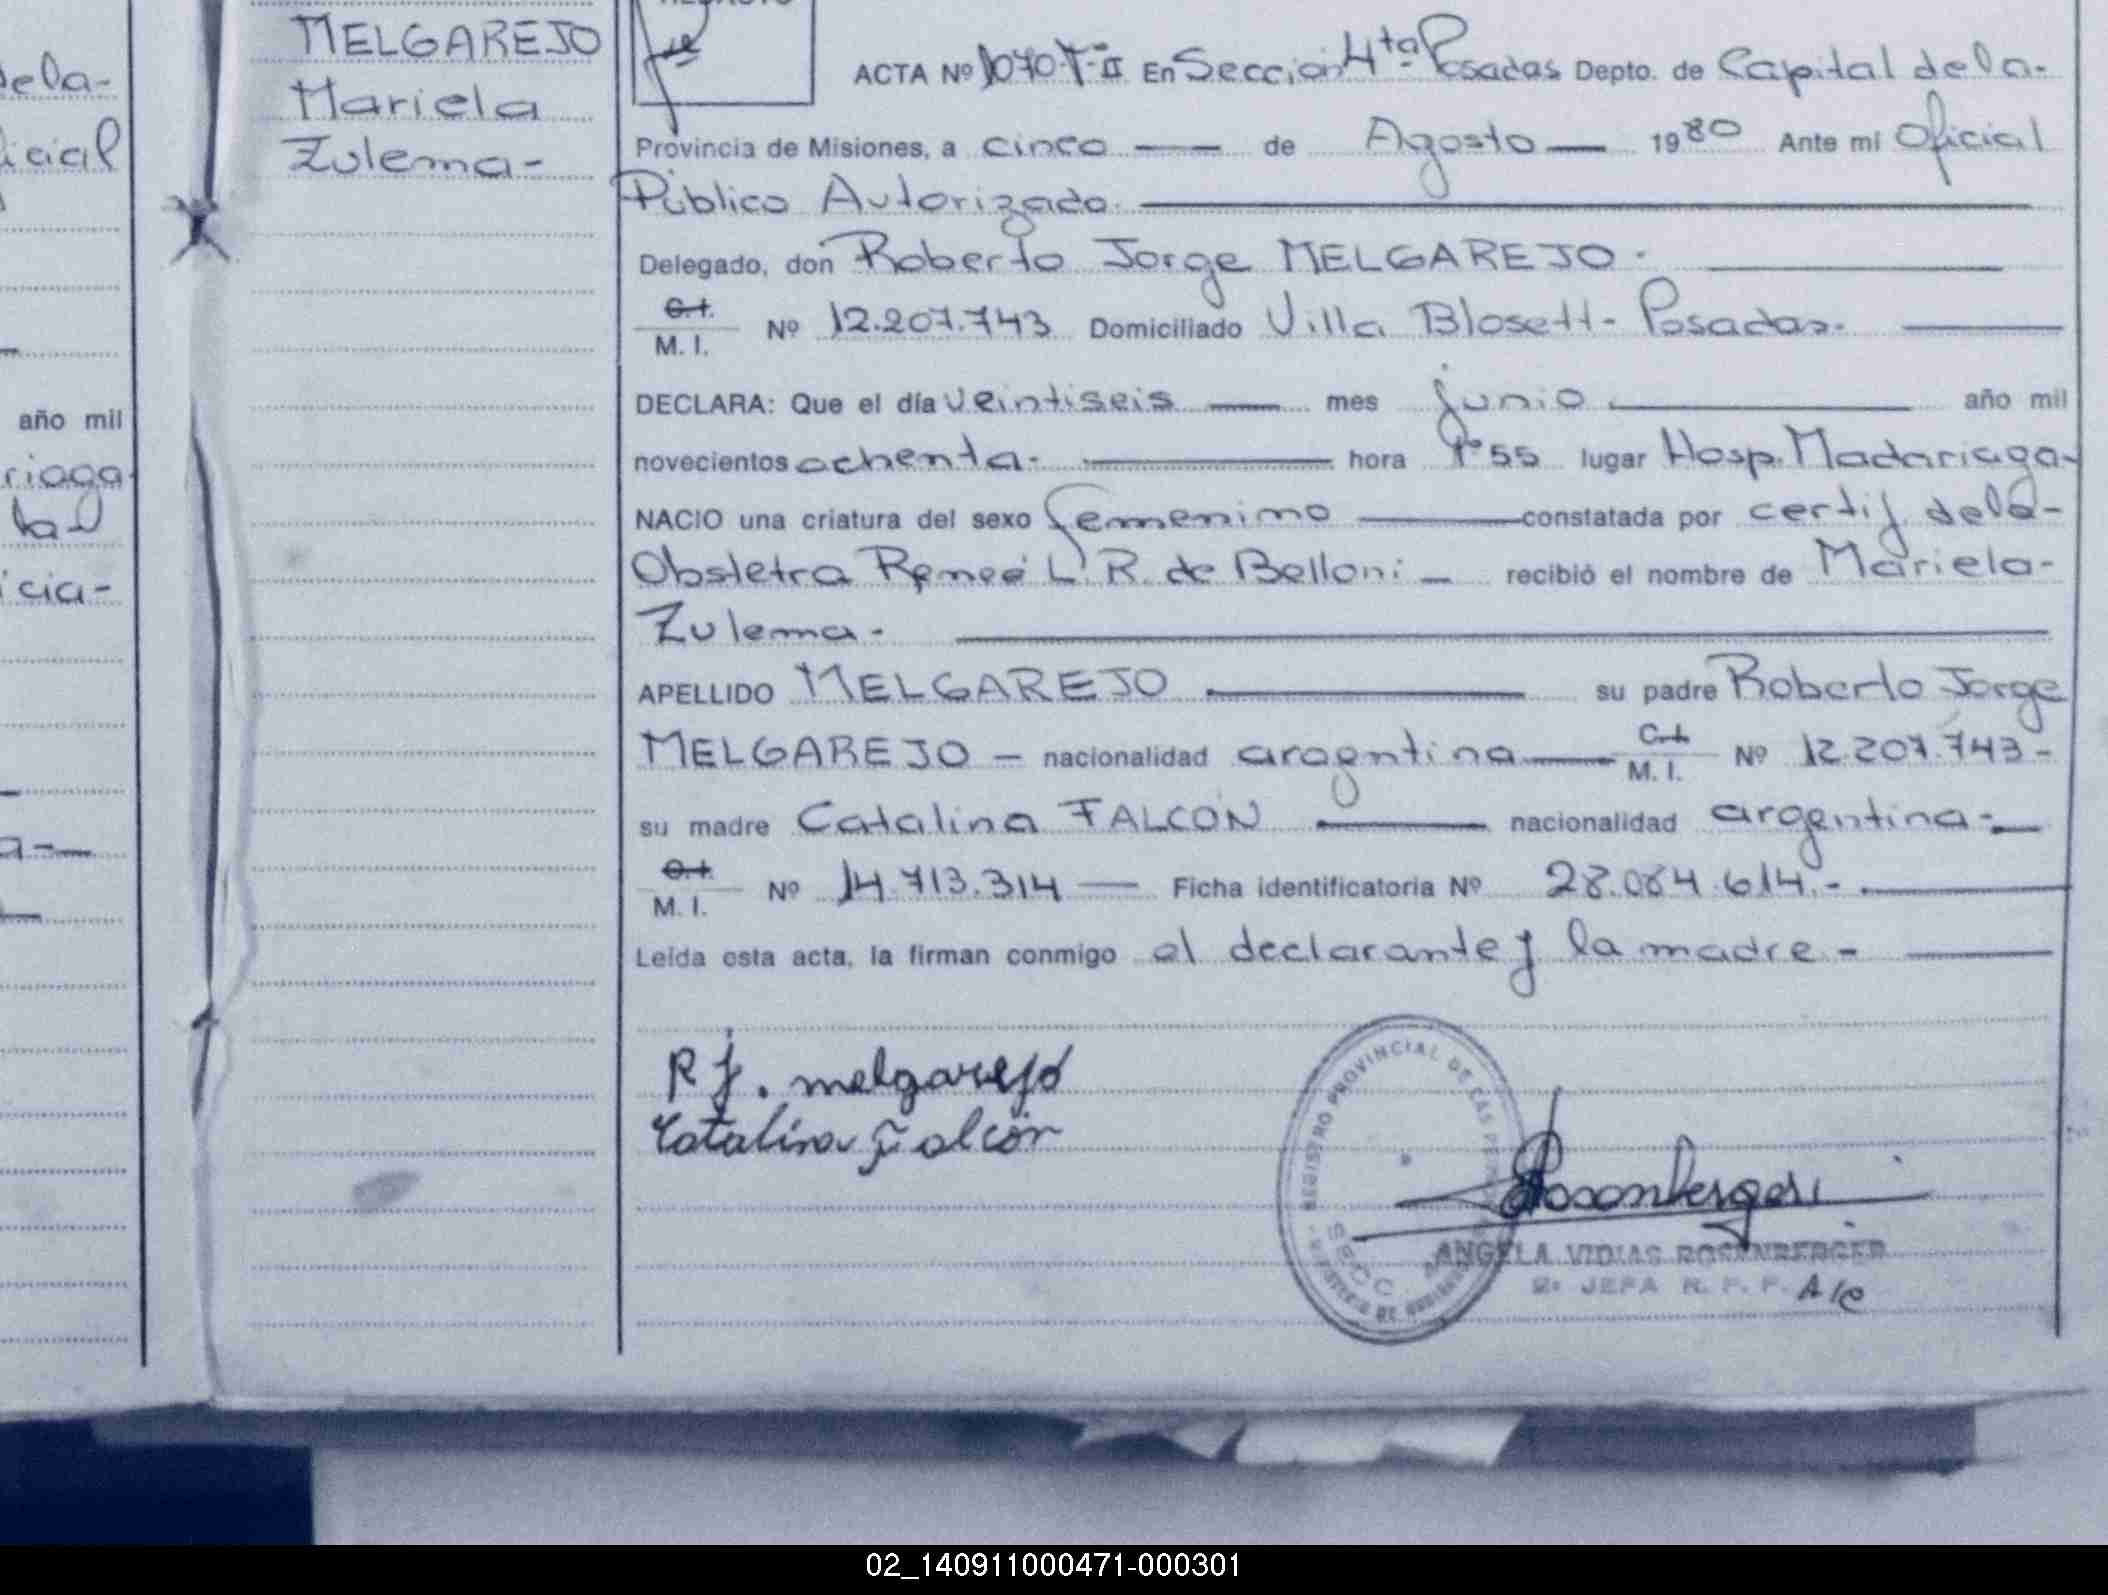 MELGAREJO
Mariela
Zulema-
ACTA Nº 1070-T-II En Sección 4ta Posadas Depto. de Capital de la-
Provincia de Misiones, a cinco — de Agosto — 1980 Ante mí Oficial
Público Autorizado.
Delegado, don Roberto Jorge MELGAREJO.
C.I.
M. I. Nº 12.207.743 Domiciliado Villa Blosett- Posadas.-
DECLARA: Que el día veintiseis — mes junio — año mil
novecientos ochenta.- hora 1º55 lugar Hosp. Madariaga-
NACIO una criatura del sexo femenino — constatada por certif. de la-
Obstetra Reneé L. R. de Belloni — recibió el nombre de Mariela-
Zulema.-
APELLIDO MELGAREJO — su padre Roberto Jorge
MELGAREJO — nacionalidad argentina — C.I. M. I. Nº 12.207.743-
su madre Catalina FALCÓN — nacionalidad argentina.—
C.I.
M. I. Nº 14.713.314 — Ficha identificatoria Nº 28.084.614.-
Leída esta acta, la firman conmigo el declarante y la madre.-
R J. melgarejo
Catalina Falcón
REGISTRO PROVINCIAL DE LAS
SECC
Rosenberger
ANGELA VIDIAS ROSENBERGER
2ª JEFA R. P. P. A/C
dela-
icial
año mil
riaga
tal
icia-
a-
02_140911000471-000301